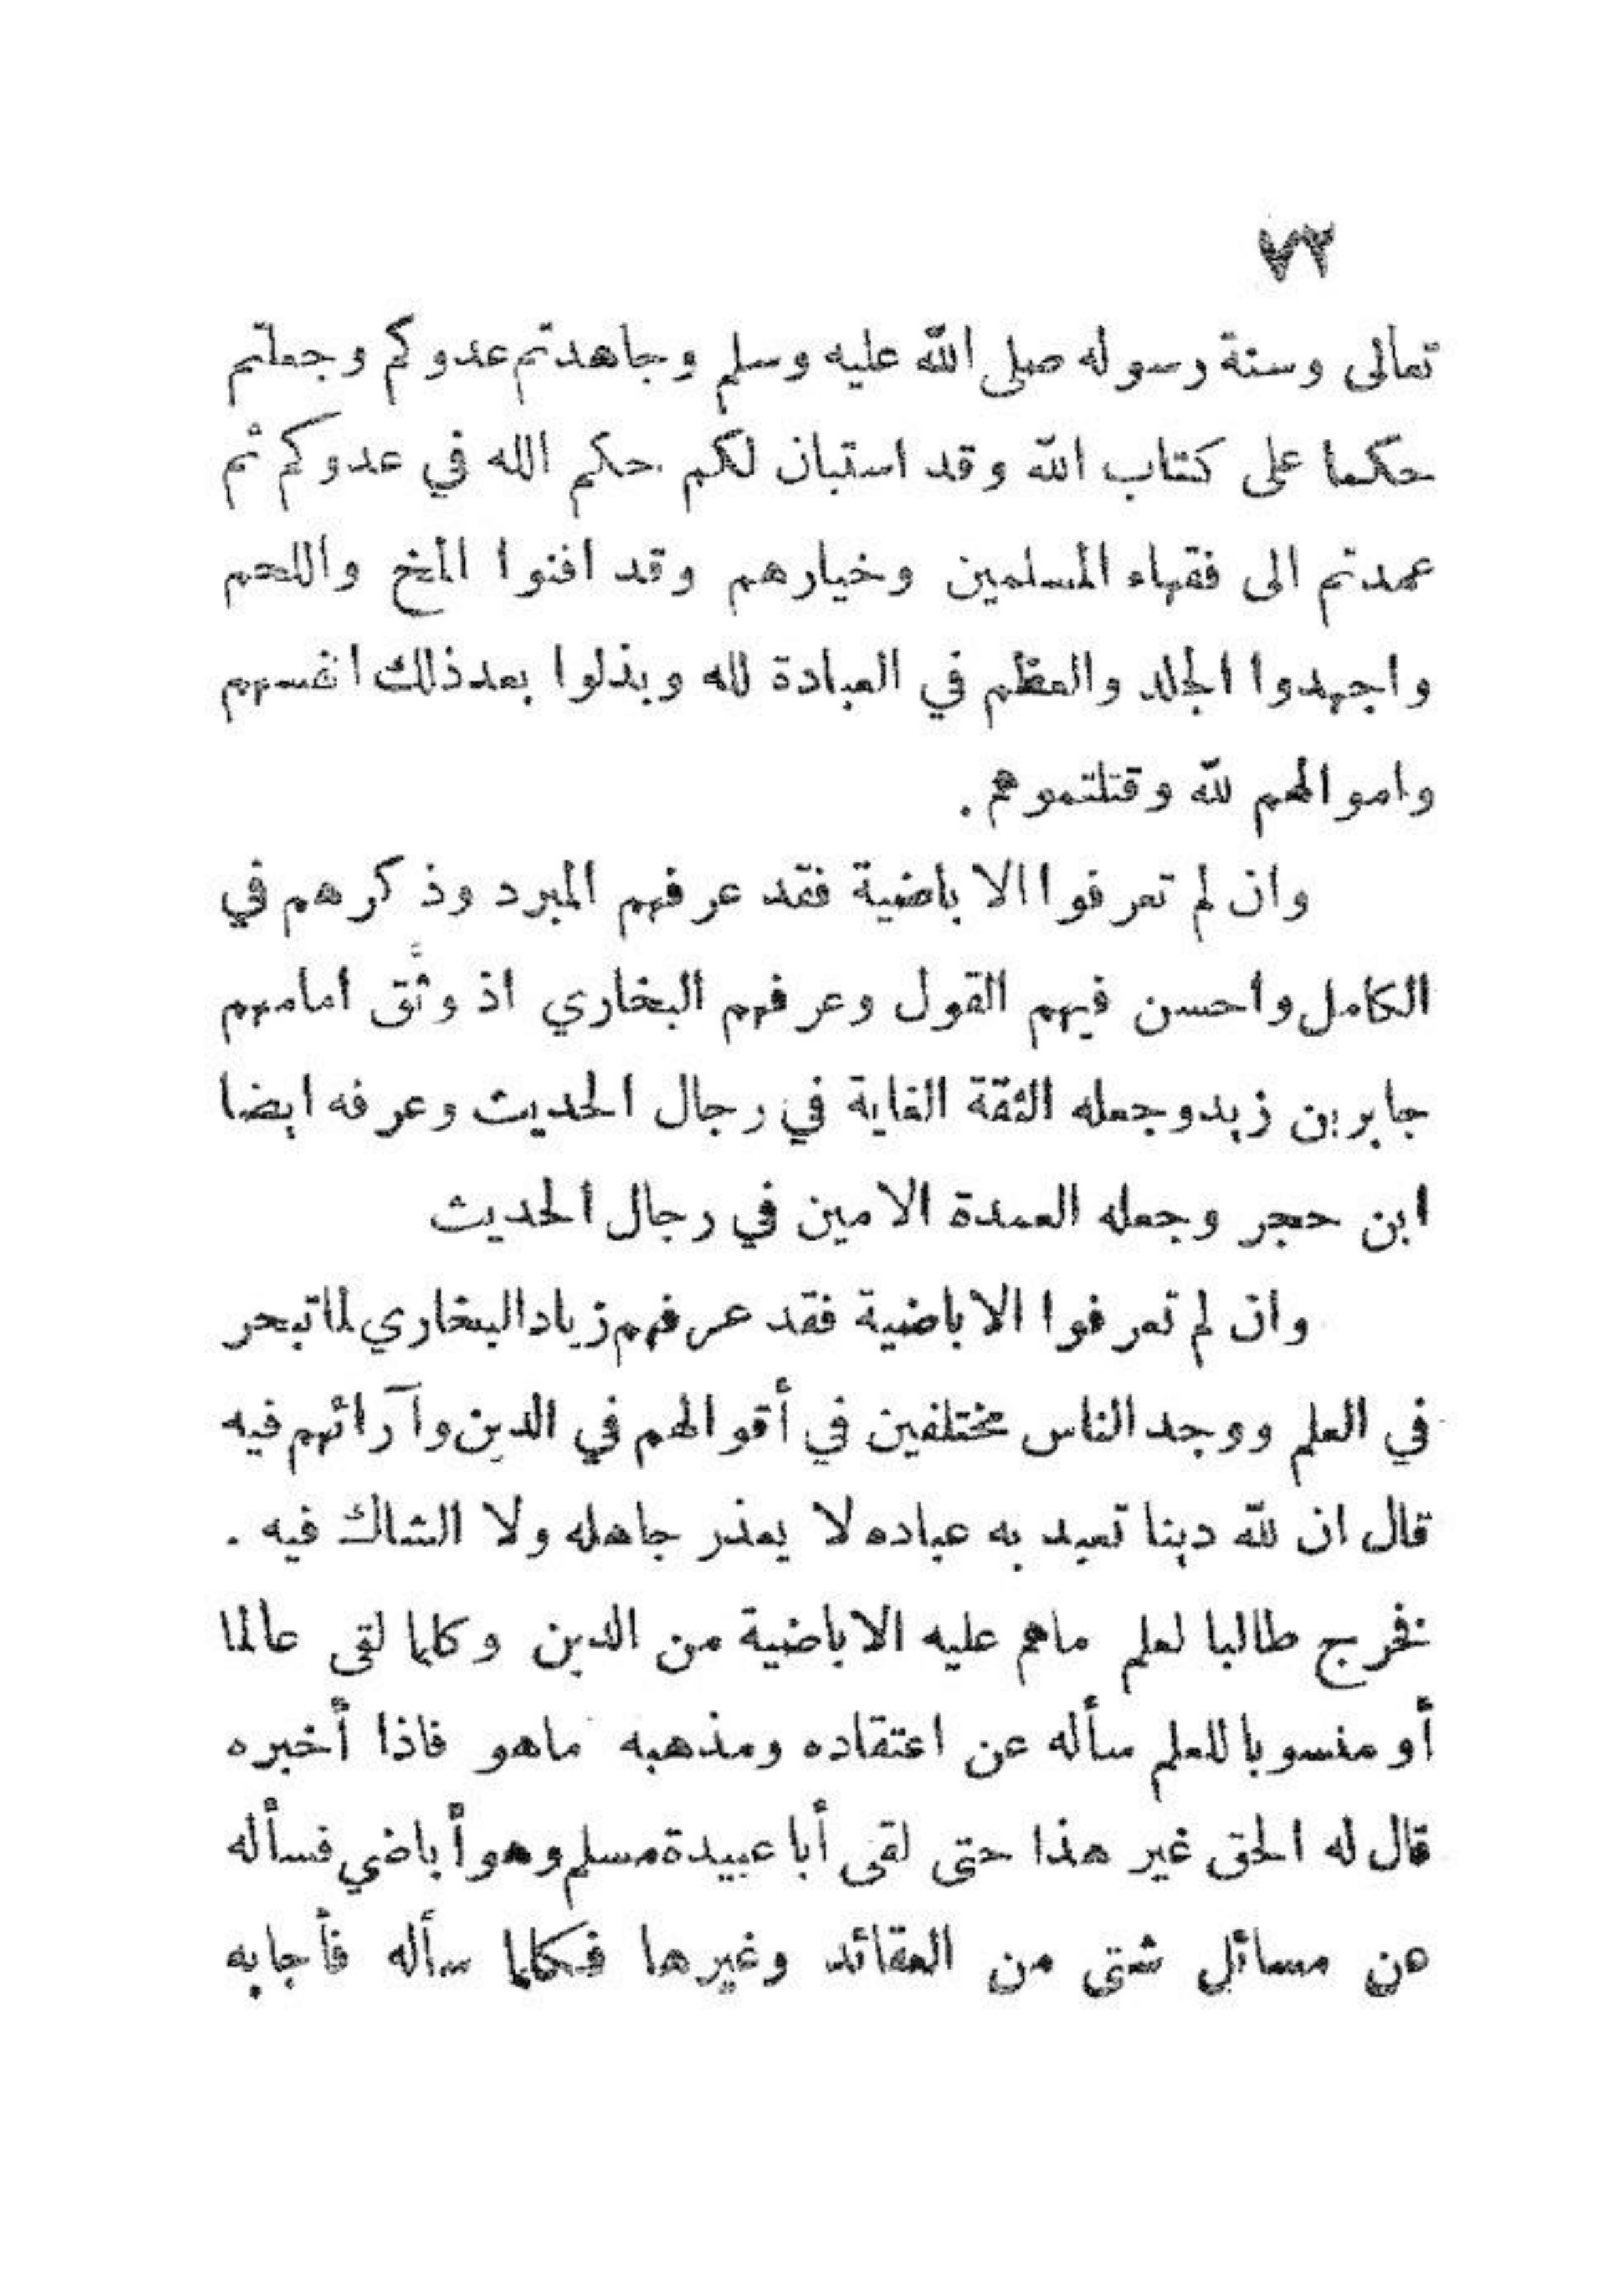 ٧٢
تعالى وسنة رسوله صلى الله عليه وسلم وجاهدتم عدوكم وجعلتم
حكما على كتاب الله وقد استبان لكم حكم الله في عدوكم ثم
عمدتم الى فقهاء المسلمين وخيارهم وقد افنوا المخ واللحم
واجهدوا الجلد والعظم في العبادة لله وبذلوا بعد ذلك انفسهم
واموالهم لله وقتلتموهم .
وان لم تعرفوا الاباضية فقد عرفهم المبرد وذكرهم في
الكامل واحسن فيهم القول وعرفهم البخاري اذ وثَّق امامهم
جابر بن زيد وجعله الثقة الغاية في رجال الحديث وعرفه ايضا
ابن حجر وجعله العمدة الامين في رجال الحديث
وان لم تعرفوا الاباضية فقد عرفهم زياد البخاري لما تبحر
في العلم ووجد الناس مختلفين في أقوالهم في الدين وآرائهم فيه
قال ان لله دينا تعبد به عباده لا يعذر جاهله ولا الشاك فيه .
فخرج طالبا لعلم ماهم عليه الاباضية من الدين وكلما لقى عالما
أو منسوبا للعلم سأله عن اعتقاده ومذهبه ماهو فاذا أخبره
قال له الحق غير هذا حتى لقى أبا عبيدة مسلم وهو أباضي فسأله
عن مسائل شتى من العقائد وغيرها فكلما سأله فأجابه